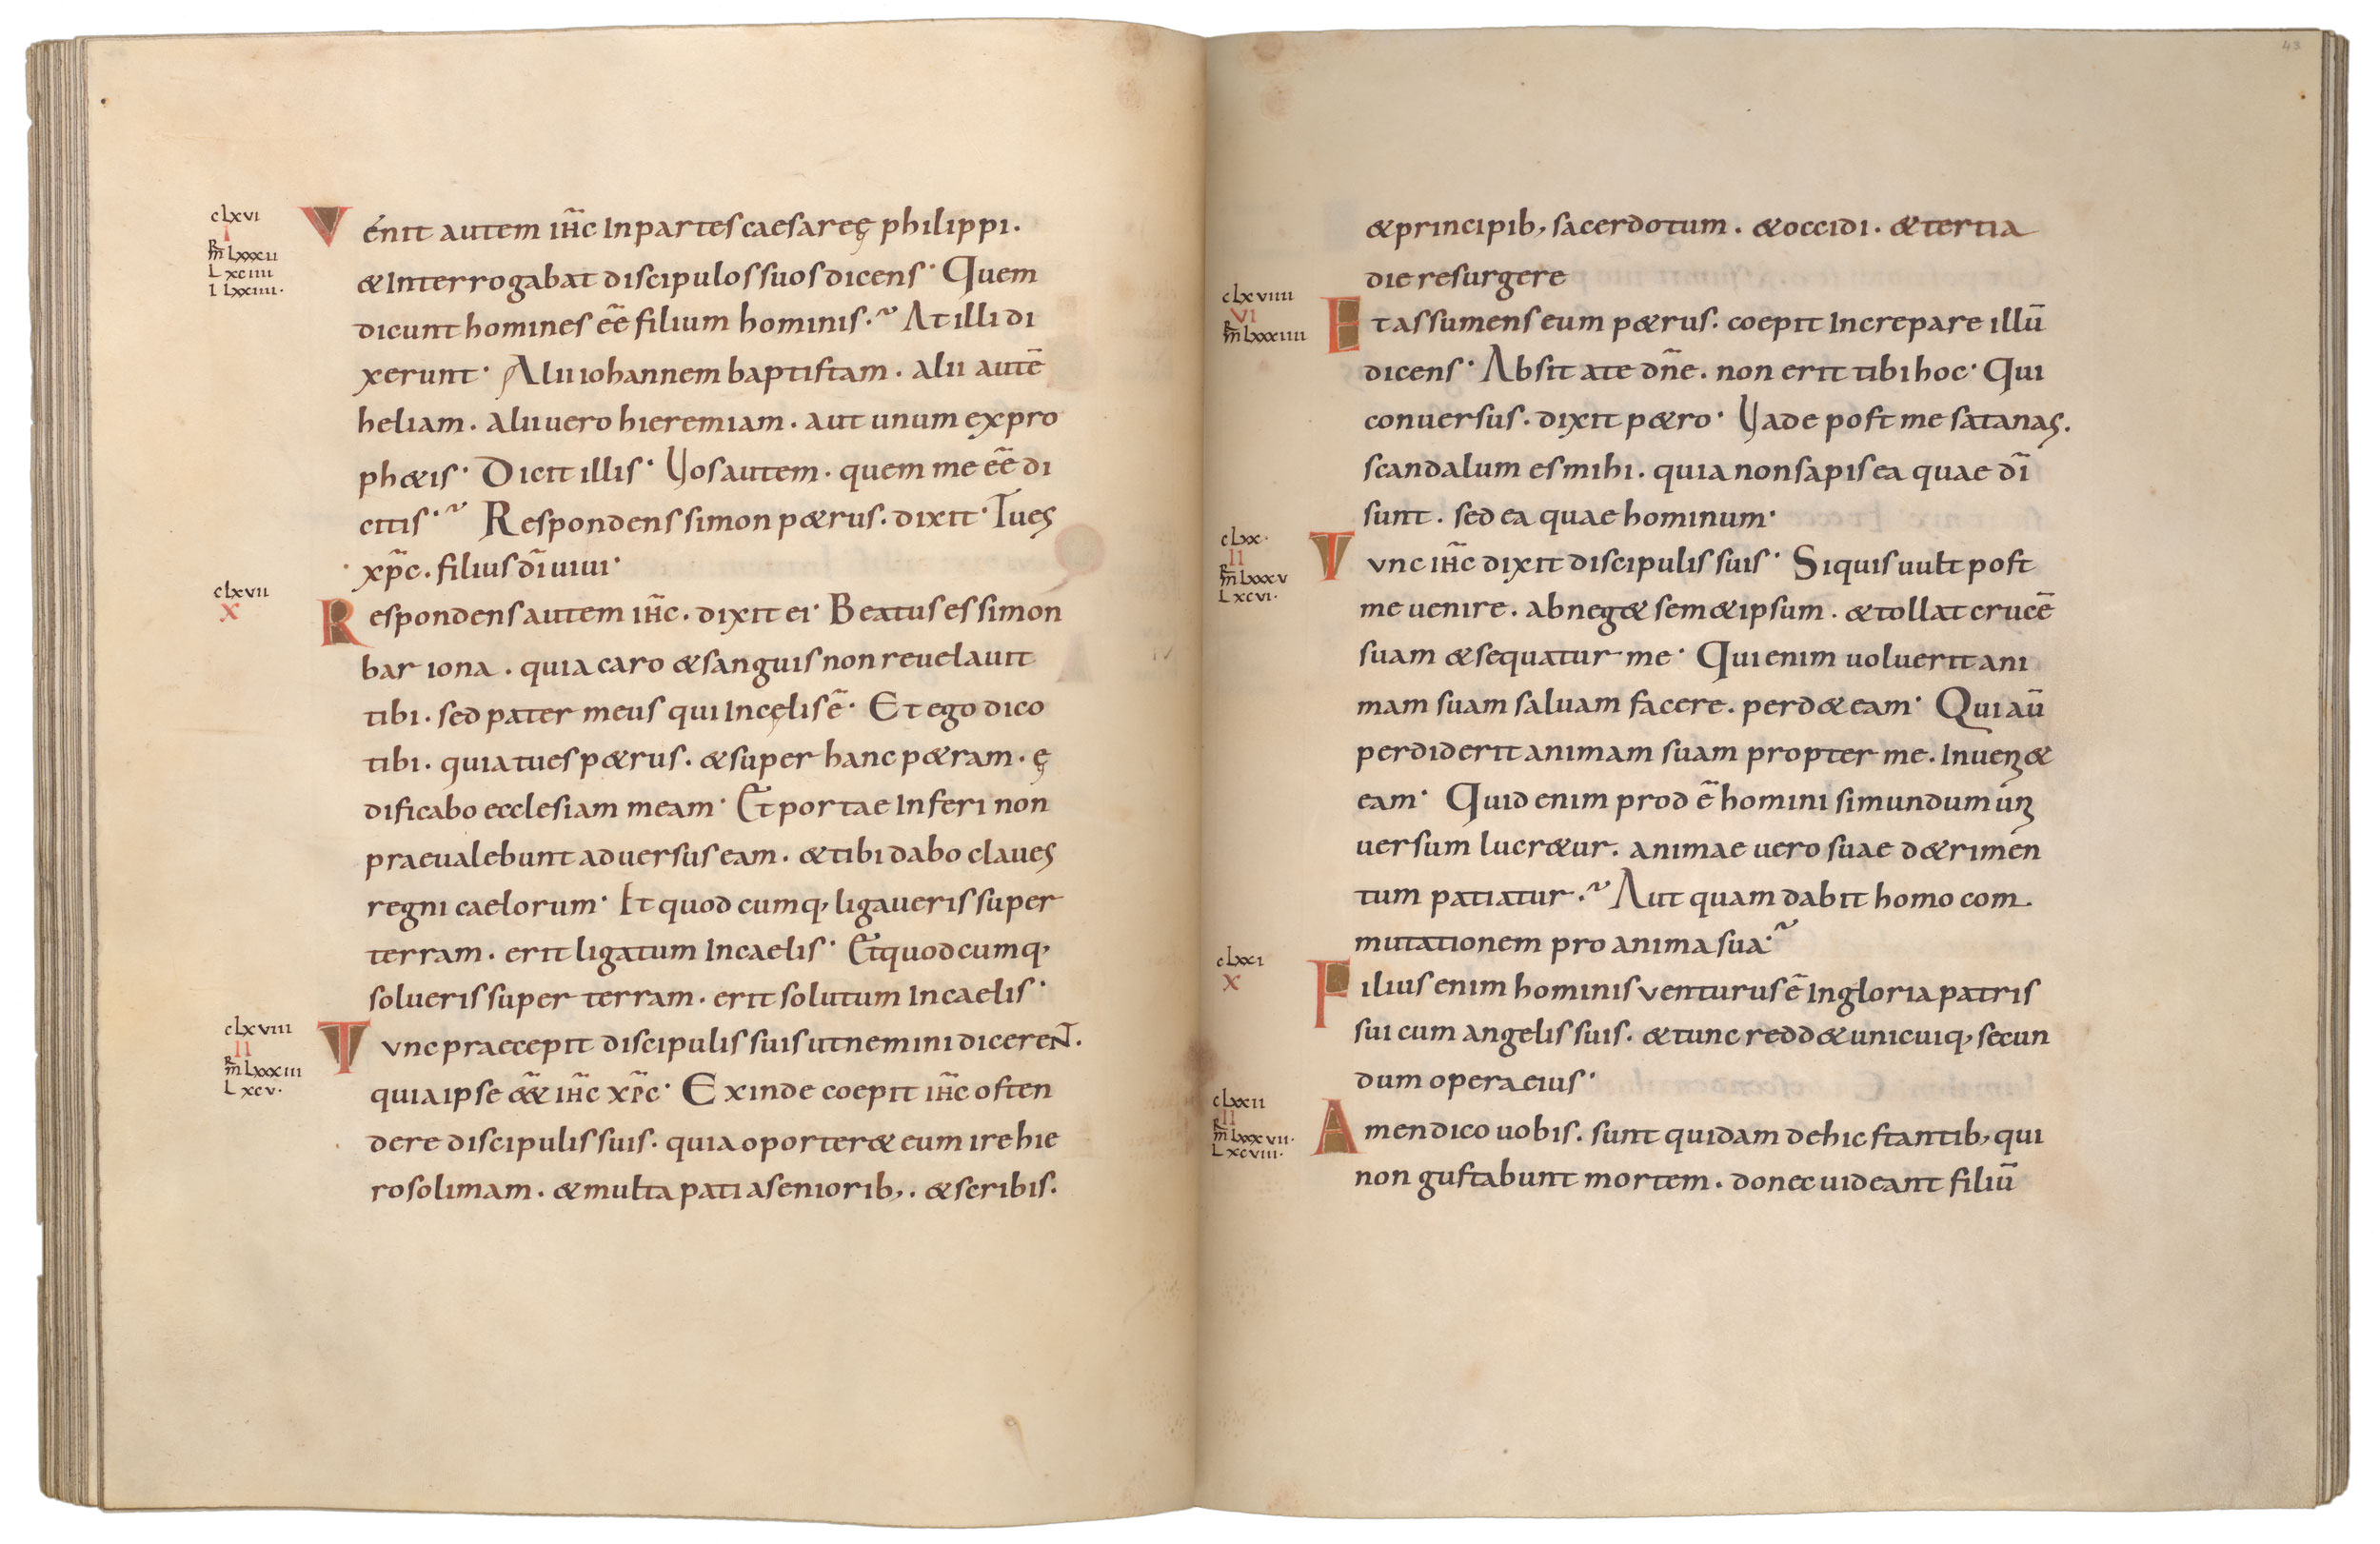 clxvi
I
mr lxxxii
L xciiii
I lxxiiii·
Vénit autem ih̅c Inpartes caesareę philippi.
&Interrogabat discipulos suos dicens· Quem
dicunt homines ee̅ filium hominis. At illi di
xerunt· Alii iohannem baptistam. alii aute̅
heliam. alii uero hieremiam. aut unum ex pro
ph&is· Dicit illis· Vos autem. quem me ee̅ di
citis· Respondens simon p&rus. dixit· Tu es
xp̅c. filius di̅ uiui·
clxvii
X
Respondens autem ih̅c. dixit ei· Beatus es simon
bar iona. quia caro &sanguis non reuelauit
tibi. sed pater meus qui Incęlis e̅· Et ego dico
tibi. quia tu es p&rus. &super hanc p&ram. ę
dificabo ecclesiam meam· Et portae Inferi non
praeualebunt aduersus eam. &tibi dabo claues
regni caelorum· Et quodcumq, ligaueris super
terram. erit ligatum Incaelis· Et quodcumq,
solueris super terram. erit solutum Incaelis·
clxviii
II
mr lxxxiii
L xcv·
Tunc praecepit discipulis suis ut nemini dicerent.
quia ipse e&̅ ih̅c xp̅c· Exinde coepit ih̅c osten
dere discipulis suis. quia oporter& eum ire hie
rosolimam. &multa pati aseniorib,. &scribis.
43
&principib, sacerdotum. &occidi. &tertia
die resurgere
clxviiii
VI
mr lxxxiiii
Et assumens eum p&rus. coepit Increpare illu̅
dicens· Absit a te dn̅e. non erit tibi hoc· Qui
conuersus. dixit p&ro· Vade post me satanas.
scandalum es mihi. quia non sapis ea quae di̅
sunt. sed ea quae hominum·
clxx·
II
mr lxxxv
L xcvi·
Tunc ih̅c dixit discipulis suis· Si quis uult post
me uenire. abneg& sem&ipsum. &tollat cruce̅
suam &sequatur me· Qui enim uoluerit ani
mam suam saluam facere. perd& eam· Qui au̅
perdiderit animam suam propter me. Inueni&
eam· Quid enim prod e̅ homini si mundum uni
uersum lucr&ur. animae uero suae d&rimen
tum patiatur. Aut quam dabit homo com
mutationem pro anima sua·
clxxi
X
Filius enim hominis venturus e̅ Ingloria patris
sui cum angelis suis. &tunc redd& unicuiq, secun
dum opera eius·
clxxii
II
mr lxxxvii·
L xcviii·
Amen dico uobis. sunt quidam de hic stantib, qui
non gustabunt mortem. donec uideant filiu̅